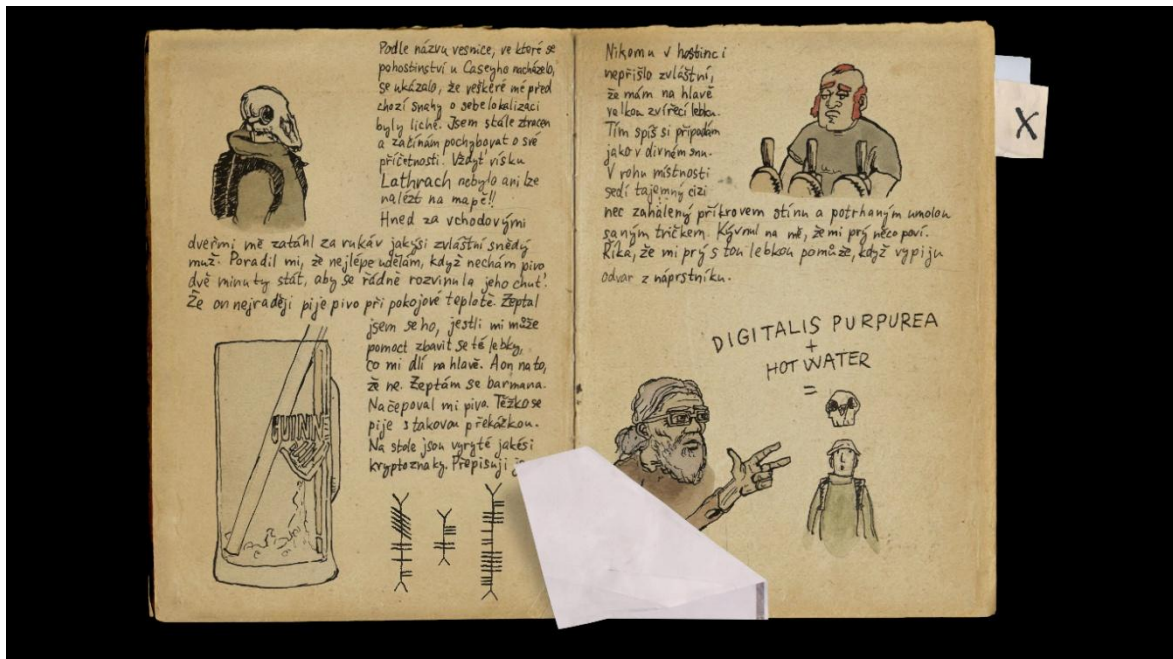 Podle názvu vesnice, ve které se
pohostinství u Caseyho nacházelo,
se ukázalo, že veškeré mé před
chozí snahy o sebelokalizaci
byly liché. Jsem stále ztracen
a začínám pochybovat o své
příčetnosti. Vždyť vísku
Lathrach nebylo ani lze
nalézt na mapě!!
Hned za vchodovými
dveřmi mě zatáhl za rukáv jakýsi zvláštní snědý
muž. Poradil mi, že nejlépe udělám, když nechám pivo
dvě minuty stát, aby se řádně rozvinula jeho chuť.
Že on nejraději pije pivo při pokojové teplotě. Zeptal
jsem se ho, jestli mi může
pomoct zbavit se té lebky,
co mi dlí na hlavě. A on na to,
že ne. Zeptám se barmana.
Načepoval mi pivo. Těžko se
pije s takovou překážkou.
Na stole jsou vyryté jakési
kryptoznaky. Přepisuji
GUINN
Nikomu v hostinci
nepřišlo zvláštní,
že mám na hlavě
velkou zvířecí lebku.
Tím spíš si připadám
jako v divném snu.
V rohu místnosti
sedí tajemný cizi
nec zahalený příkrovem stínu a potrhaným umolou
saným tričkem. Kývnul na mě, že mi prý něco poví.
Říká, že mi prý s tou lebkou pomůže, když vypiju
odvar z náprstníku.
DIGITALIS PURPUREA
+
HOT WATER
=
X